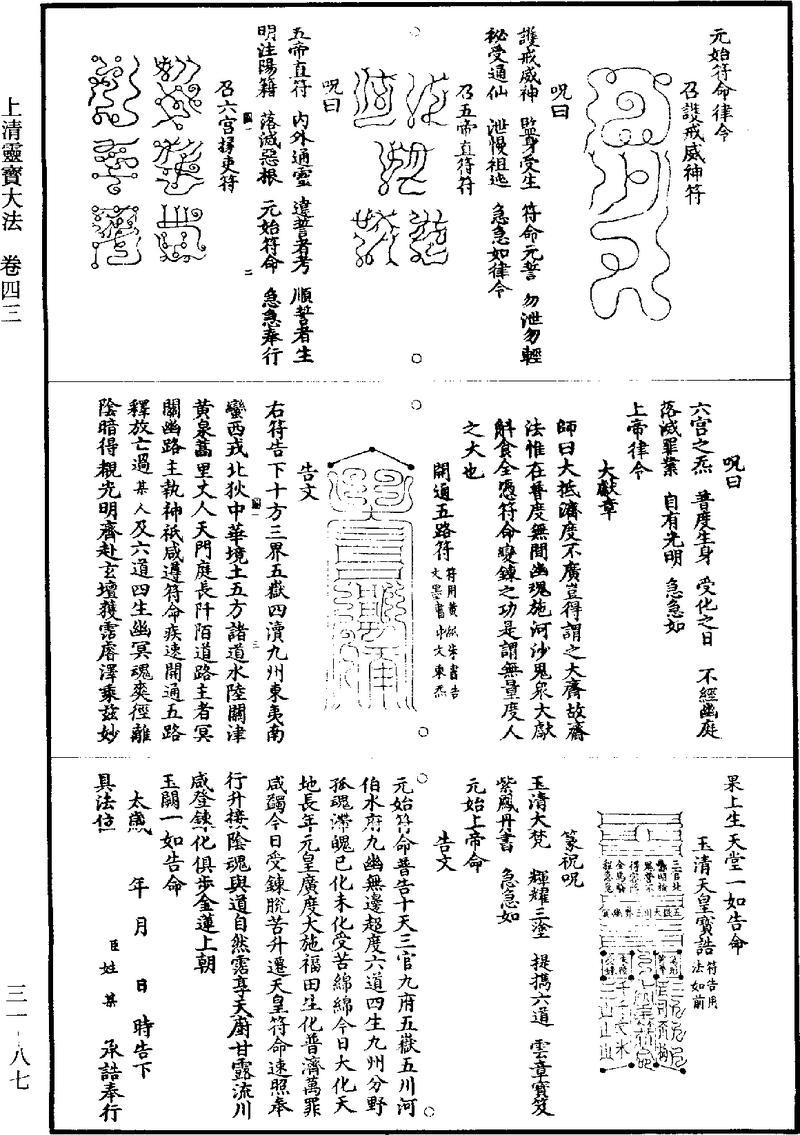 上清靈寶大法　卷四三
三一－八七
元始符命律令
召護戒威神符
呪曰
護戒威神　監身受生　符命元誓　勿泄勿輕
秘受通仙　泄慢祖逃　急急如律令
召五帝直符符
呪曰
五帝直符　内外通靈　違誓者考　順誓者生
明注陽籍　落滅惡根　元始符命　急急奉行
召六宮掾吏符
呪曰
六宮之炁　普度生身　受化之日　不經幽庭
落滅罪業　自有光明　急急如
上帝律令
大獻章
師曰大抵濟度不廣豈得謂之大齋故齋
法惟在普度無間幽魂施河沙鬼衆大獻
斛食全憑符命變鍊之功是謂無量度人
之大也
開通五路符　符用黃紙朱書告文墨書中文東炁
告文
右符告下十方三界五嶽四瀆九州東夷南
蠻西戎北狄中華境土五方諸道水陸關津
黃泉蒿里丈人天門庭長阡陌道路主者冥
關幽路主執神祇咸遵符命疾速開通五路
釋放亡過某人及六道四生幽冥魂爽徑離
陰暗得覩光明齋赴玄壇獲霑睿澤乘茲妙
果上生天堂一如告命
玉清天皇寶誥　符告用法如前
篆祝呪
玉清大梵　輝耀三塗　提攜六道　雲章寶笈
紫鳳丹書　急急如
元始上帝命
告文
元始符命普告十天三官九府五嶽五川河
伯水府九幽無邊超度六道四生九州分野
孤魂滯魄已化未化受苦綿綿今日大化天
地長年元皇廣度大施福田生化普濟萬罪
咸蠲今日受鍊脫苦升遷天皇符命速照奉
行升接陰魂與道自然霑享天廚甘露流川
咸登鍊化俱步金蓮上朝
玉闕一如告命
太歲　年　月　日　時告下
具法位　臣姓某　承誥奉行